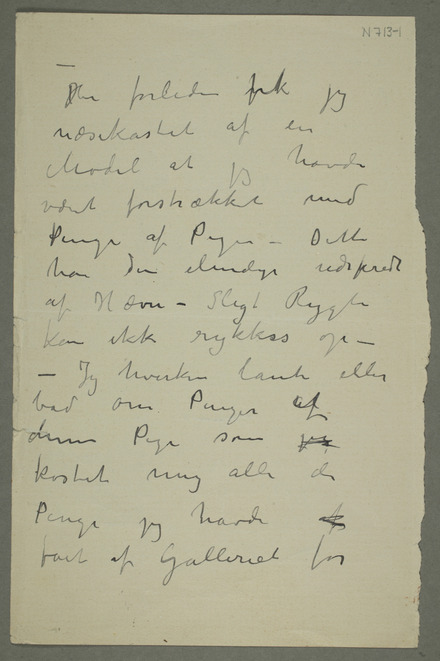 N 713-1
– Her forleden fik jeg
næsekastet af en
Model at jeg havde
været forstrækket med
Penge af Piger – Dette
har den elendige udspredt
af Hævn – Sligt Rygte
kan ikke rykkes op –
– Jeg hverken lante eller
bad om Penger af
denne Pige som jeg
kostet mig alle de
Penge jeg havde
faaet af Galleriet for